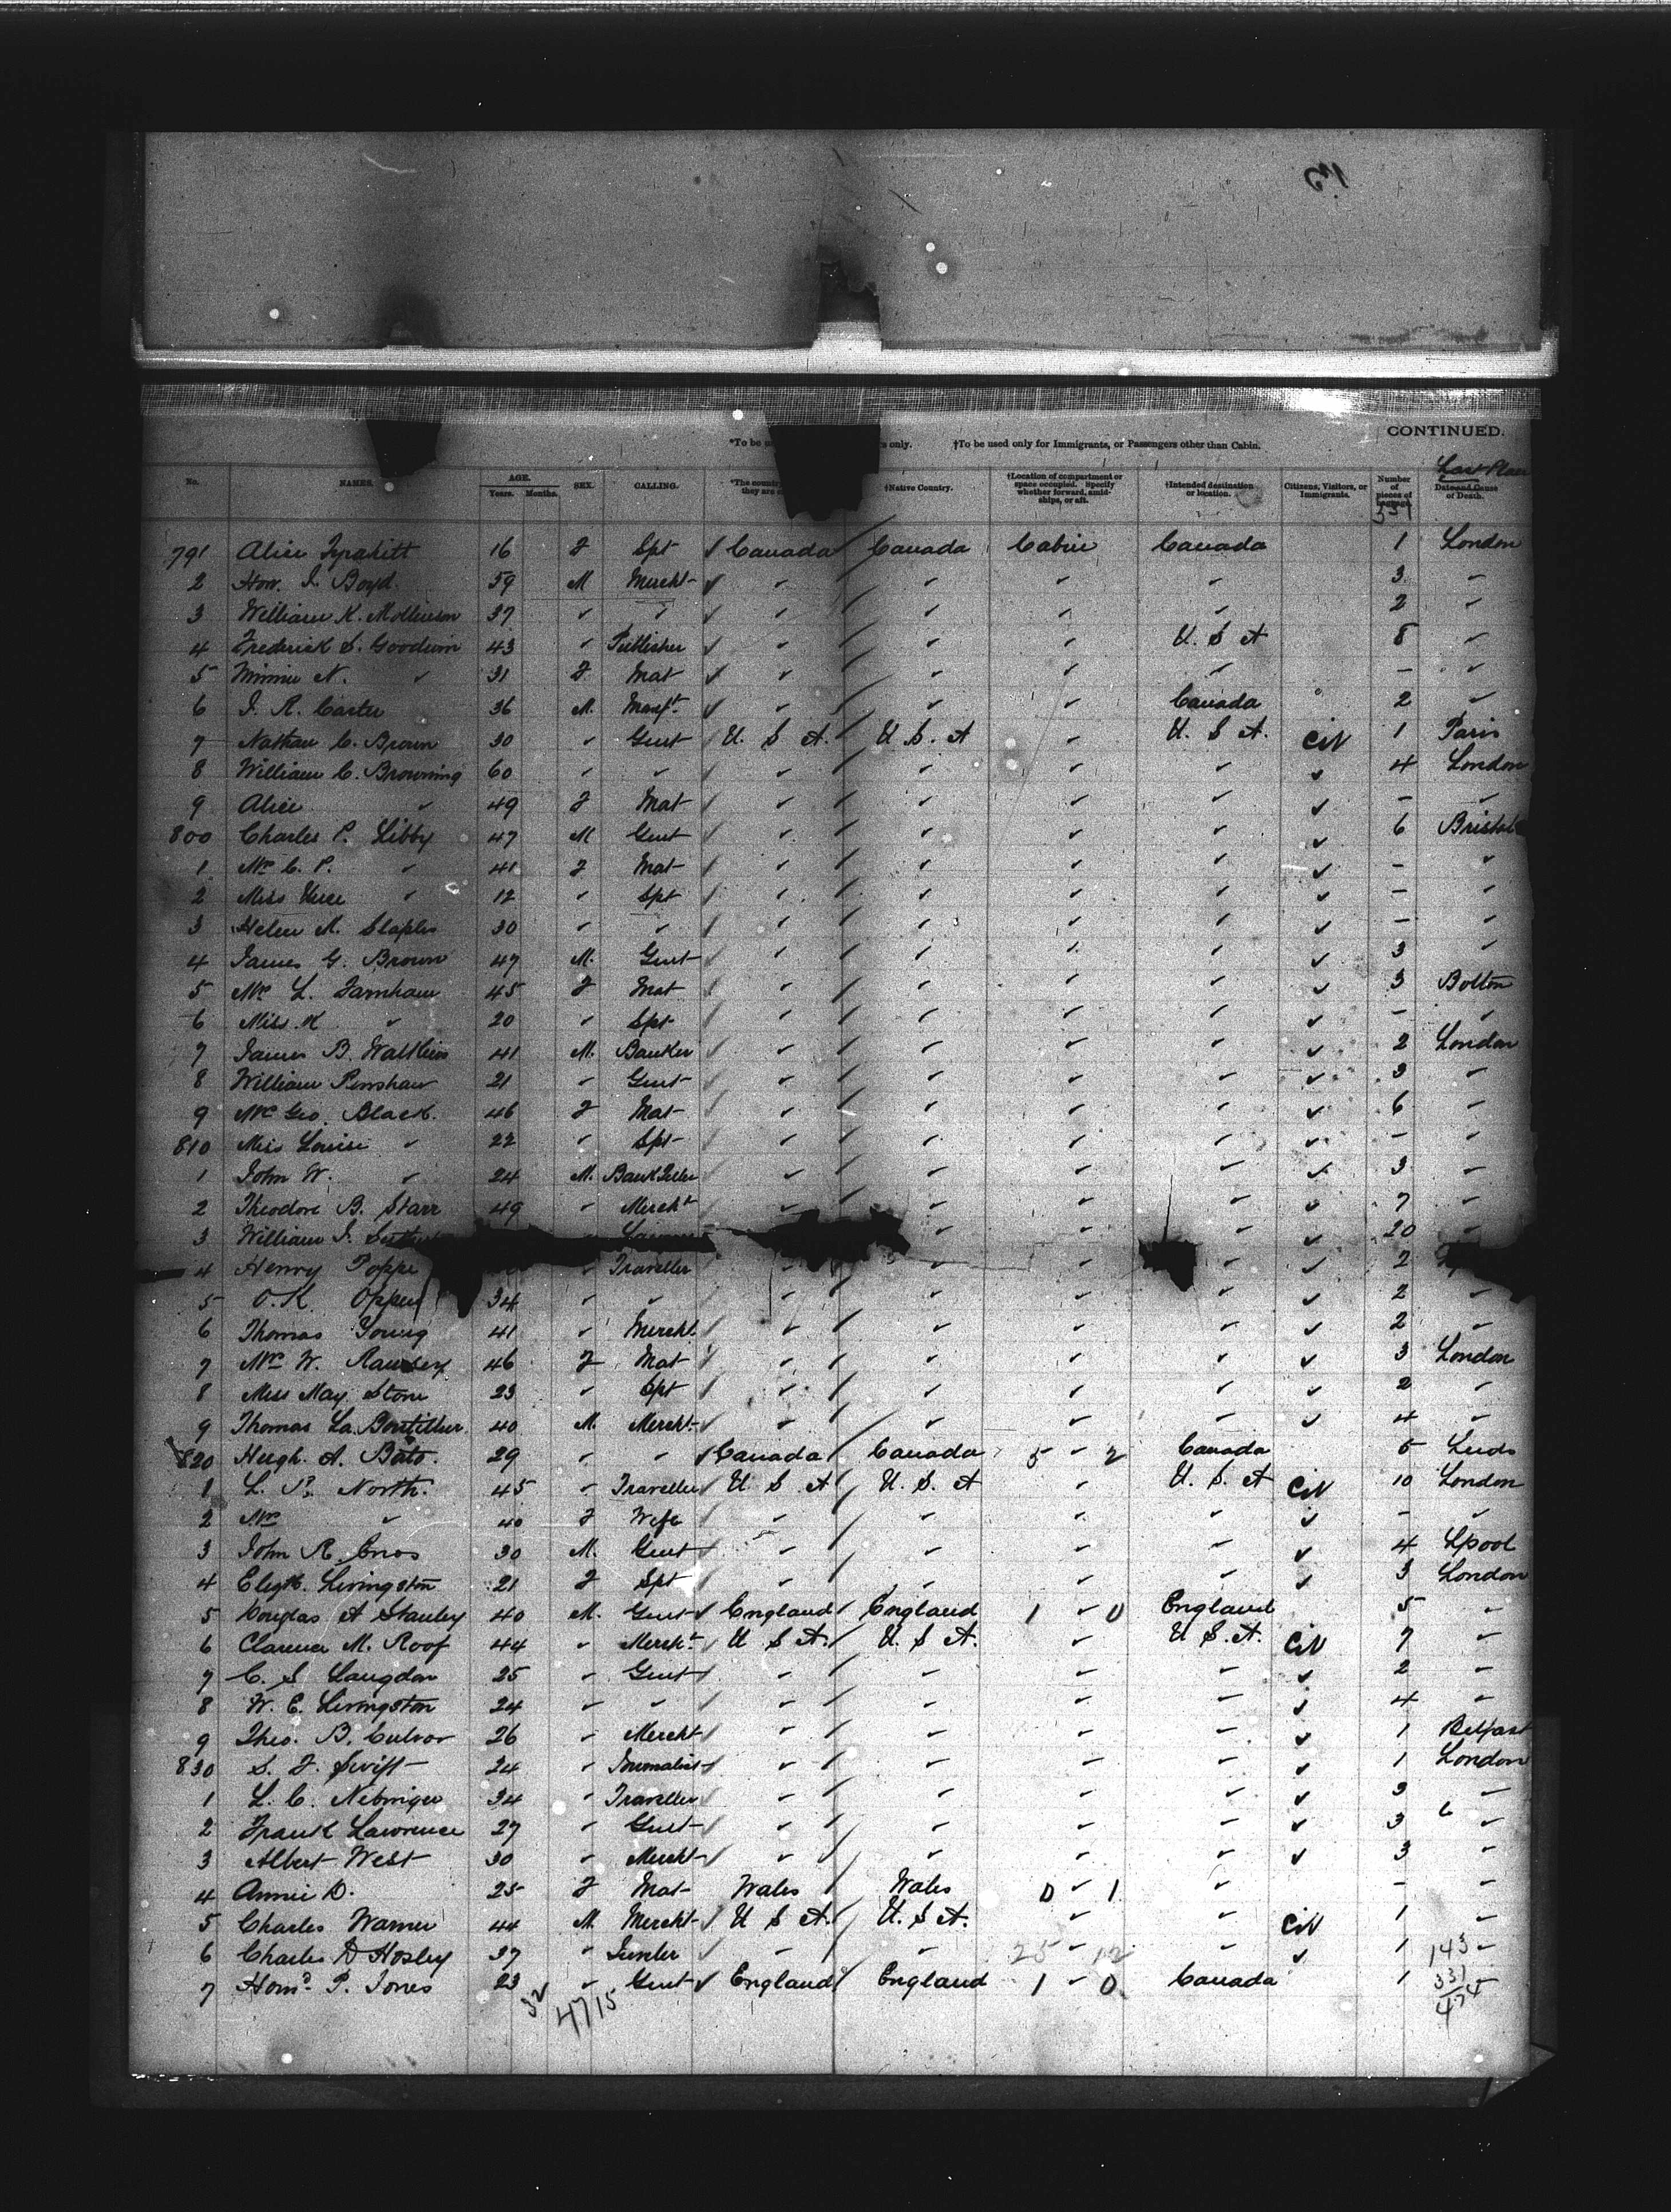 CONTINUED.
*To be u s only. †To be used only for Immigrants, or Passengers other than Cabin.
Last Place
No. NAMES. AGE. Years. Months. SEX. CALLING. *The country they are c †Native Country. †Location of compartment or space occupied. Specify whether forward, amidships, or aft. †Intended destination or location. Citizens, Visitors, or Immigrants. Number of pieces of Date and Cause of Death.
331
791 Alice 16 F Spt ✓ Canada Canada Cabin Canada 1 London
2 Hon. J. Boyd 59 M Mercht ✓ " " " " 3 "
3 William K. Mollinson 37 " " ✓ " " " " 2 "
4 Frederick S. Goodwin 43 " Publisher ✓ " " " U. S A 8 "
5 Minnie N. " 31 F Mat ✓ " " " " - "
6 J. R. Carter 36 M. Manft ✓ " " " Canada 2 "
7 Nathan C. Brown 30 " Gent U. S A. U. S. A " U. S A. Cit 1 Paris
8 William C. Browning 60 " " " " " " ✓ 4 London
9 Alice " 49 F Mat " " " " ✓ - "
800 Charles P. Libby 47 M Gent " " " " ✓ 6 Bristol
1 Mrs C. P. " 41 F Mat " " " " ✓ - "
2 Miss " 12 " Spt " " " " ✓ - "
3 Helen A. Staples 30 " " " " " " ✓ - "
4 James G. Brown 47 M. Gent " " " " ✓ 3 "
5 Mrs L. Farnham 45 F Mat " " " " ✓ 3 Bolton
6 Miss K " 20 " Spt " " " " ✓ - "
7 James B. Watkins 41 M. Banker " " " " ✓ 2 London
8 William Penshaw 21 " Gent " " " " ✓ 3 "
9 Mrs Geo. Black 46 F Mat " " " " ✓ 6 "
810 Miss Louise " 22 " Spt " " " " ✓ - "
1 John W. " 24 M. Bank Teller " " " " ✓ 3 "
2 Theodore B. Starr 49 " Mercht " " " " ✓ 7 "
3 William J. " " " " ✓ 20 "
4 Henry Poppe " Traveller " " " " ✓ 2
5 O. K. Oppen 34 " " " " " " ✓ 2 "
6 Thomas Young 41 " Mercht. " " " " ✓ 2 "
7 Mrs W. Ramsey 46 F Mat " " " " ✓ 3 London
8 Miss May Stone 23 " Spt " " " " ✓ 2 "
9 Thomas La Boutillier 40 M. Mercht " " " " ✓ 4 "
820 Hugh A. Bato. 29 " " ✓ Canada Canada 5 - 2 Canada 5 Leeds
1 L. P. North. 45 " Traveller U. S A U. S. A " U. S. A Cit 10 London
2 Mrs " 40 F Wife " " " " ✓ - "
3 John R. Enos 30 M. Gent " " " " ✓ 4 Lpool
4 Elizth. Livingston 21 F Spt " " " " ✓ 3 London
5 Douglas A Stanley 40 M. Gent ✓ England England 1 - 0 England 5 "
6 Clarence M. Roof 44 " Mercht U S A. U. S A. " U S. A. Cit 7 "
7 C. S. Langdon 25 " Gent " " " " ✓ 2 "
8 W. E. Livingston 24 " " " " " " ✓ 4 "
9 Theo. B. Culvor 26 " Mercht " " " " ✓ 1 Belfast
830 S. F. Swift 24 " Journalist " " " " ✓ 1 London
1 L. C. Nebinger 34 " Traveller " " " " ✓ 3 "
2 Frank Lawrence 27 " Gent " " " " ✓ 3 6 "
3 Albert West 30 " Mercht " " " " ✓ 3 "
4 Annie D. 25 F Mat Wales Wales 0 - 1 " - "
5 Charles Warner 44 M. Mercht U S A. U. S A. " " Cit 1 "
6 Charles D Hosley 37 " " " 25 - 12 " ✓ 1 "
143
7 P. Jones 23 " Gent ✓ England England 1 - 0 Canada 1
331
474
32 4715